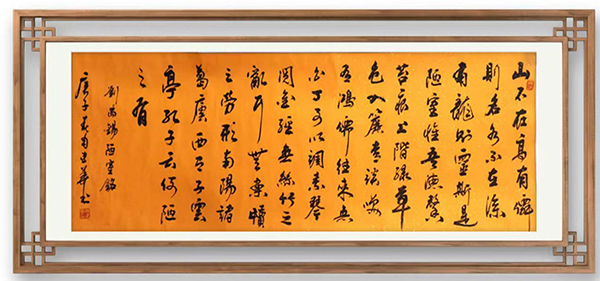 山不在高有僊
則名水不在深
有龍則靈斯是
陋室惟吾德馨
苔痕上階綠草
色入簾青談笑
有鴻儒往來無
白丁可以調素琴
閱金經無絲竹之
亂耳無案牘
之勞形南陽諸
葛廬西蜀子雲
亭孔子云何陋
之有
劉禹錫陋室銘
庚子 華書